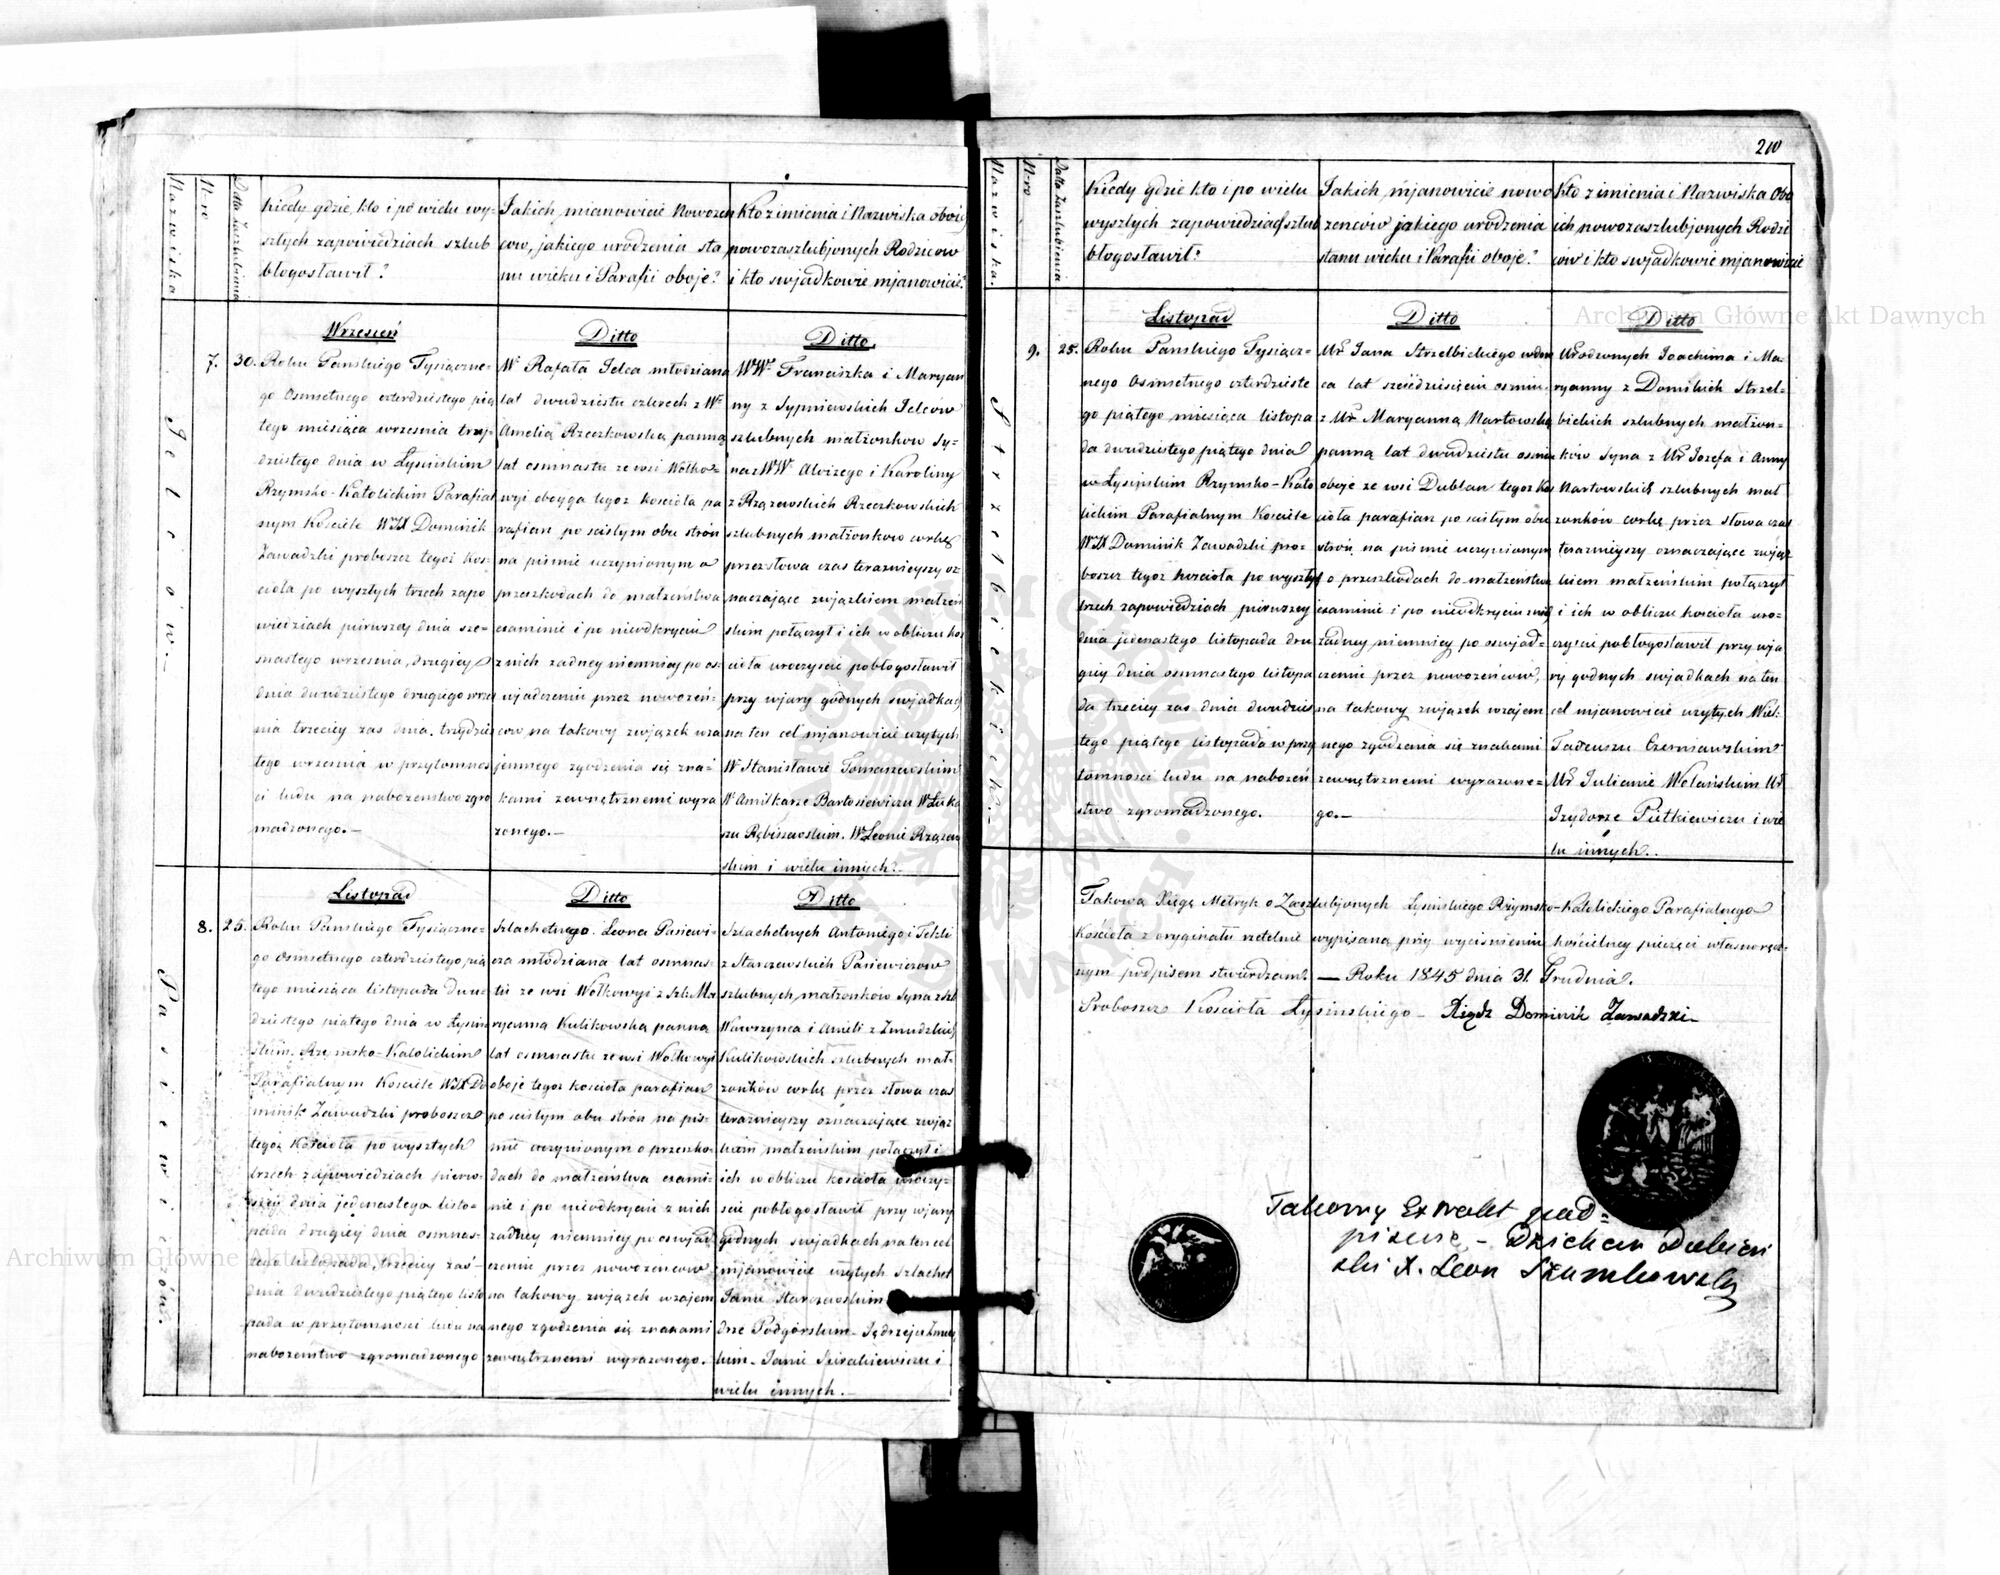 Nazwiska
N-ro
Datta Zaszlubienia
Kiedy gdzie, kto i po wielu wy-
szłych zapowiedziach szlub
błogosławił?
Jakich, mianowicie Nowożen
ców, jakiego urodzenia sta
nu wieku i Parafii oboje?
Kto z imienia i Nazwiska oboich
nowozaszlubjonych Rodziców
i kto swjadkowie mjanowicie?
Jelców.
7.
30.
Wrzesień
Roku Panskiego Tysiączne-
go Osmsetnego czterdziestego pią
tego miesiąca września trzy-
dzistego dnia w Łysińskim
Rzymsko-Katolickim Parafial
nym Kościele WJX Dominik
Zawadzki proboszcz tegoż koś-
cioła po wyszłych trzech zapo
wiedziach pierwszej dnia sze-
snastego września, drugiey
dnia dwudziestego drugiego wrze
nia trzeciey zas dnia trzydzies
tego września w przytomnos
ci ludu na nabożenstwo zgro
madzonego.—
Ditto
W. Rafała Jelca młodziana
lat dwudziestu czterech z W.
Amelią Rzeczkowską panną
lat osmnastu ze wsi Wołko-
wyi obeyga tegoż kościoła pa
rafian po ścisłym obu strón
na piśmie uczynionym o
przeszkodach do małżeństwa
examinie i po nieodkryciu
z nich żadney niemniey po os-
wjadczeniu przez nowożeń-
ców na takowy związek wza
jemnego zgodzenia się zna-
kami zewnętrznemi wyra
żonego.—
Ditto
WW. Franciszka i Maryan
ny z Sypniewskich Jelców
szlubnych małżonków Sy-
na z WW. Alvizego i Karoliny
z Rzązewskich Rzeczkowskich
szlubnych małżonków corkę
przez słowa czas teraznieyszy oz
naczające związkiem małżeń
skim połączył i ich w obliczu koś
cioła uroczyscie pobłogosławił
przy wjary godnych swjadkach
na ten cel mjanowicie użytych
W. Stanisławie Tomaszewskim
W. Amilkarze Bartosiewiczu W. Łuka
szu Rębiszewskim. W. Leonie Rzązew
skim i wielu innych.—
Pasiewiczów.
8.
25.
Listopad
Roku Panskiego Tysiączne-
go Osmsetnego czterdziestego pią
tego miesiąca listopada dwu-
dziestego piątego dnia w Łysiń
skim Rzymsko-Katolickim
Parafialnym Kościele WJX Do
minik Zawadzki proboszcz
tegoż Kościoła po wyszłych
trzech zapowiedziach pierw-
szey dnia jedenastego listo-
pada drugiey dnia osmnas-
tego listopada, trzeciey zaś-
dnia dwudziestego piątego listo
pada w przytomności ludu na
nabożenstwo zgromadzonego
Ditto
Szlachetnego Leona Pasiewi-
cza młodziana lat osmnas-
tu ze wsi Wołkowyi z Szl. Ma
ryanną Kulikowską panną
lat osmnastu ze wsi Wołkowyi
oboje tegoż kościoła parafian
po ścisłym obu strón na piś-
mie uczynionym o przeszko-
dach do małżeństwa exami-
nie i po nieodkryciu z nich
żadney niemniey po oswjad
czeniu przez nowożenców
na takowy związek wzajem
nego zgodzenia się znakami
zewnętrznemi wyrażonego.
Ditto
Szlachetnych Antoniego i Tekli
z Starczewskich Pasiewiczów
szlubnych małżonków Syna z Szl
Wawrzynca i Anieli z Żmudzkich
Kulikowskich szlubnych mał-
żonków corkę przez słowa czas
teraznieyszy oznaczające związ
kiem małżeńskim połączył i
ich w obliczu kościoła uroczy-
scie pobłogosławił przy wjary
godnych swjadkach na ten cel
mjanowicie użytych Szlachet
Janu Starczewskim
drze Podgórskim. Jędrzeju Żmudz
kim. Janie Sirakiewiczu i
wielu innych.—
210
Nazwiska.
N-ro
Datta Zaszlubienia
Kiedy gdzie kto i po wielu
wyszłych zapowiedziach szlub
błogosławił?
Jakich, mjanowicie nowo
żenców jakiego urodzenia
stanu wieku i Parafii oboje?
Kto z imienia i Nazwiska Obo
ich nowozaszlubjonych Rodzi
ców i kto swjadkowie mjanowicie
Strzelbickich.
9.
25.
Listopad
Roku Panskiego Tysiącz-
nego Osmsetnego czterdzieste
go piątego miesiąca listopa
da dwudziestego piątego dnia
w Łysińskim Rzymsko-Kato
lickim Parafialnym Kościele
WJX Dominik Zawadzki pro-
boszcz tegoż kościoła po wyszłych
trzech zapowiedziach pierwszey
dnia jedenastego listopada dru
giey dnia osmnastego listopa
da trzeciey zas dnia dwudzies
tego piątego listopada w przy
tomności ludu na nabożeń
stwo zgromadzonego.
Ditto
Ur. Jana Strzelbickiego wdow
ca lat sześćdziesięciu osmiu
z Ur Maryanną Nartowską
panną lat dwudziestu osmiu
oboje ze wsi Dublan tegoż koś
cioła parafian po ścisłym obu
strón na piśmie uczynionym
o przeszkodach do małżeństwa
examinie i po nieodkryciu z nich
żadney niemniey po oswjad-
czeniu przez nowożeńców,
na takowy związek wzajem
nego zgodzenia się znakami
zewnętrznemi wyrażone-
go.—
Ditto
Urodzonych Joachima i Ma-
ryanny z Domskich Strzel-
bickich szlubnych małżon-
ków Syna z Ur Jozefa i Anny
Nartowskich szlubnych mał
żonków corkę przez słowa czas
teraznieyszy oznaczające związ
kiem małżeńskim połączył
i ich w obliczu kościoła uro-
czyscie pobłogosławił przy wja
ry godnych swjadkach na ten
cel mjanowicie użytych Wiel.
Tadeuszu Czerniawskim
Ur Julianie Wolańskim Ur
Izydorze Pietkiewiczu i wie
lu innych.
Takową Xięgę Metryk o Zaszlubjonych Łysińskiego Rzymsko-Katolickiego Parafialnego
Kościoła z oryginału rzetelnie wypisaną przy wyciśnieniu kościelney pieczęci własnoręcz-
nym podpisem stwierdzam.— Roku 1845 dnia 31 Grudnia.
Proboszcz Kościoła Łysińskiego— Xiądz Dominik Zawadzki—
Takowy Extrakt pod=
pisuję – Dziekan Dubień
ski X. Leon Szumkowski
Archiwum Główne Akt Dawnych
Archiwum Główne Akt Dawnych